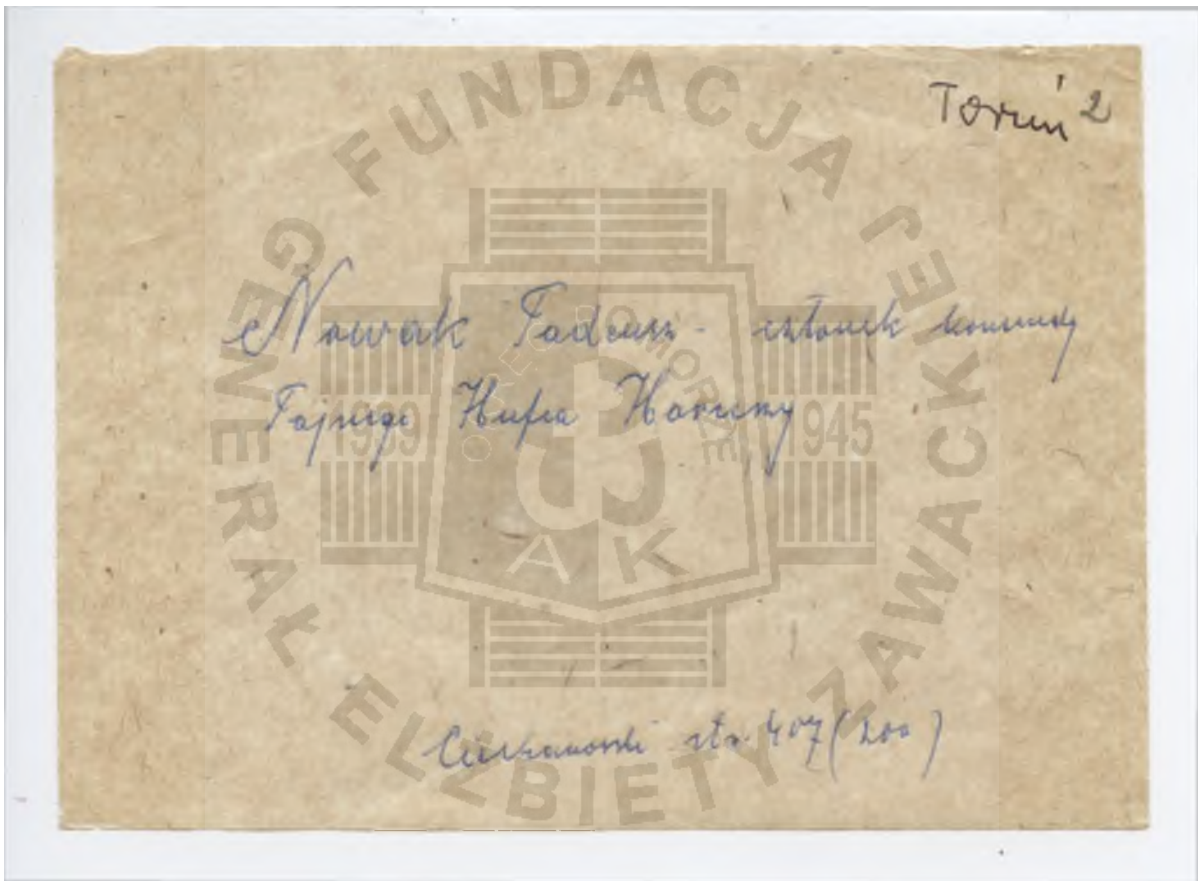 Toruń 2
Nowak Tadeusz - członek komendy
Tajnego Hufca Harcerzy
Ciechanowski str 407 (200)
FUNDACJA GENERAŁ ELŻBIETY ZAWACKIEJ
OKRĘG POMORZE
1939 1945
AK